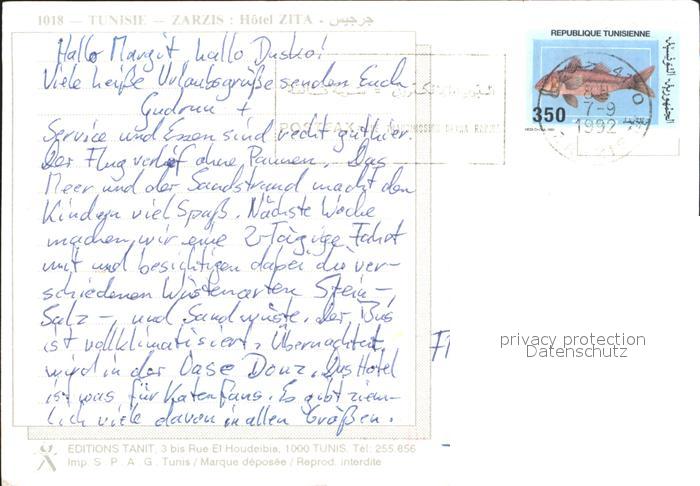 1018 — TUNISIE — ZARZIS : Hôtel ZITA - جرجيس
REPUBLIQUE TUNISIENNE
الجمهورية التونسية
350
7-9
1992
Hallo Margit hallo Dusko!
Viele heiße Urlaubsgrüße senden Euch
Gudrun +
Service und Essen sind recht gut hier.
Der Flug verlief ohne Pannen. Das
Meer und der Sandstrand macht den
Kindern viel Spaß. Nächste Woche
machen wir eine 2-Tägige Fahrt
mit und besichtigen dabei die ver-
schiedenen Wüstenarten Stein-,
Salz-, und Sandwüste. der Bus
ist vollklimatisiert. Übernachtet
wird in der Oase Douz. Das Hotel
ist was für Katzenfans. Es gibt ziem-
lich viele davon in allen Größen.
privacy protection
Datenschutz
EDITIONS TANIT, 3 bis Rue El Houdeibia, 1000 TUNIS. Tél: 255.656
Imp. S.P.A.G. Tunis / Marque déposée / Reprod. interdite